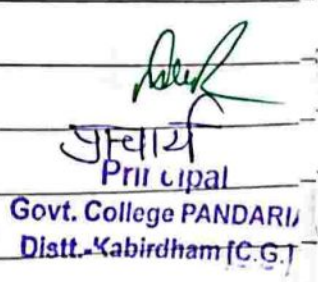 प्राचार्य
Principal
Govt. College PANDARIA
Distt.-Kabirdham [C.G.]